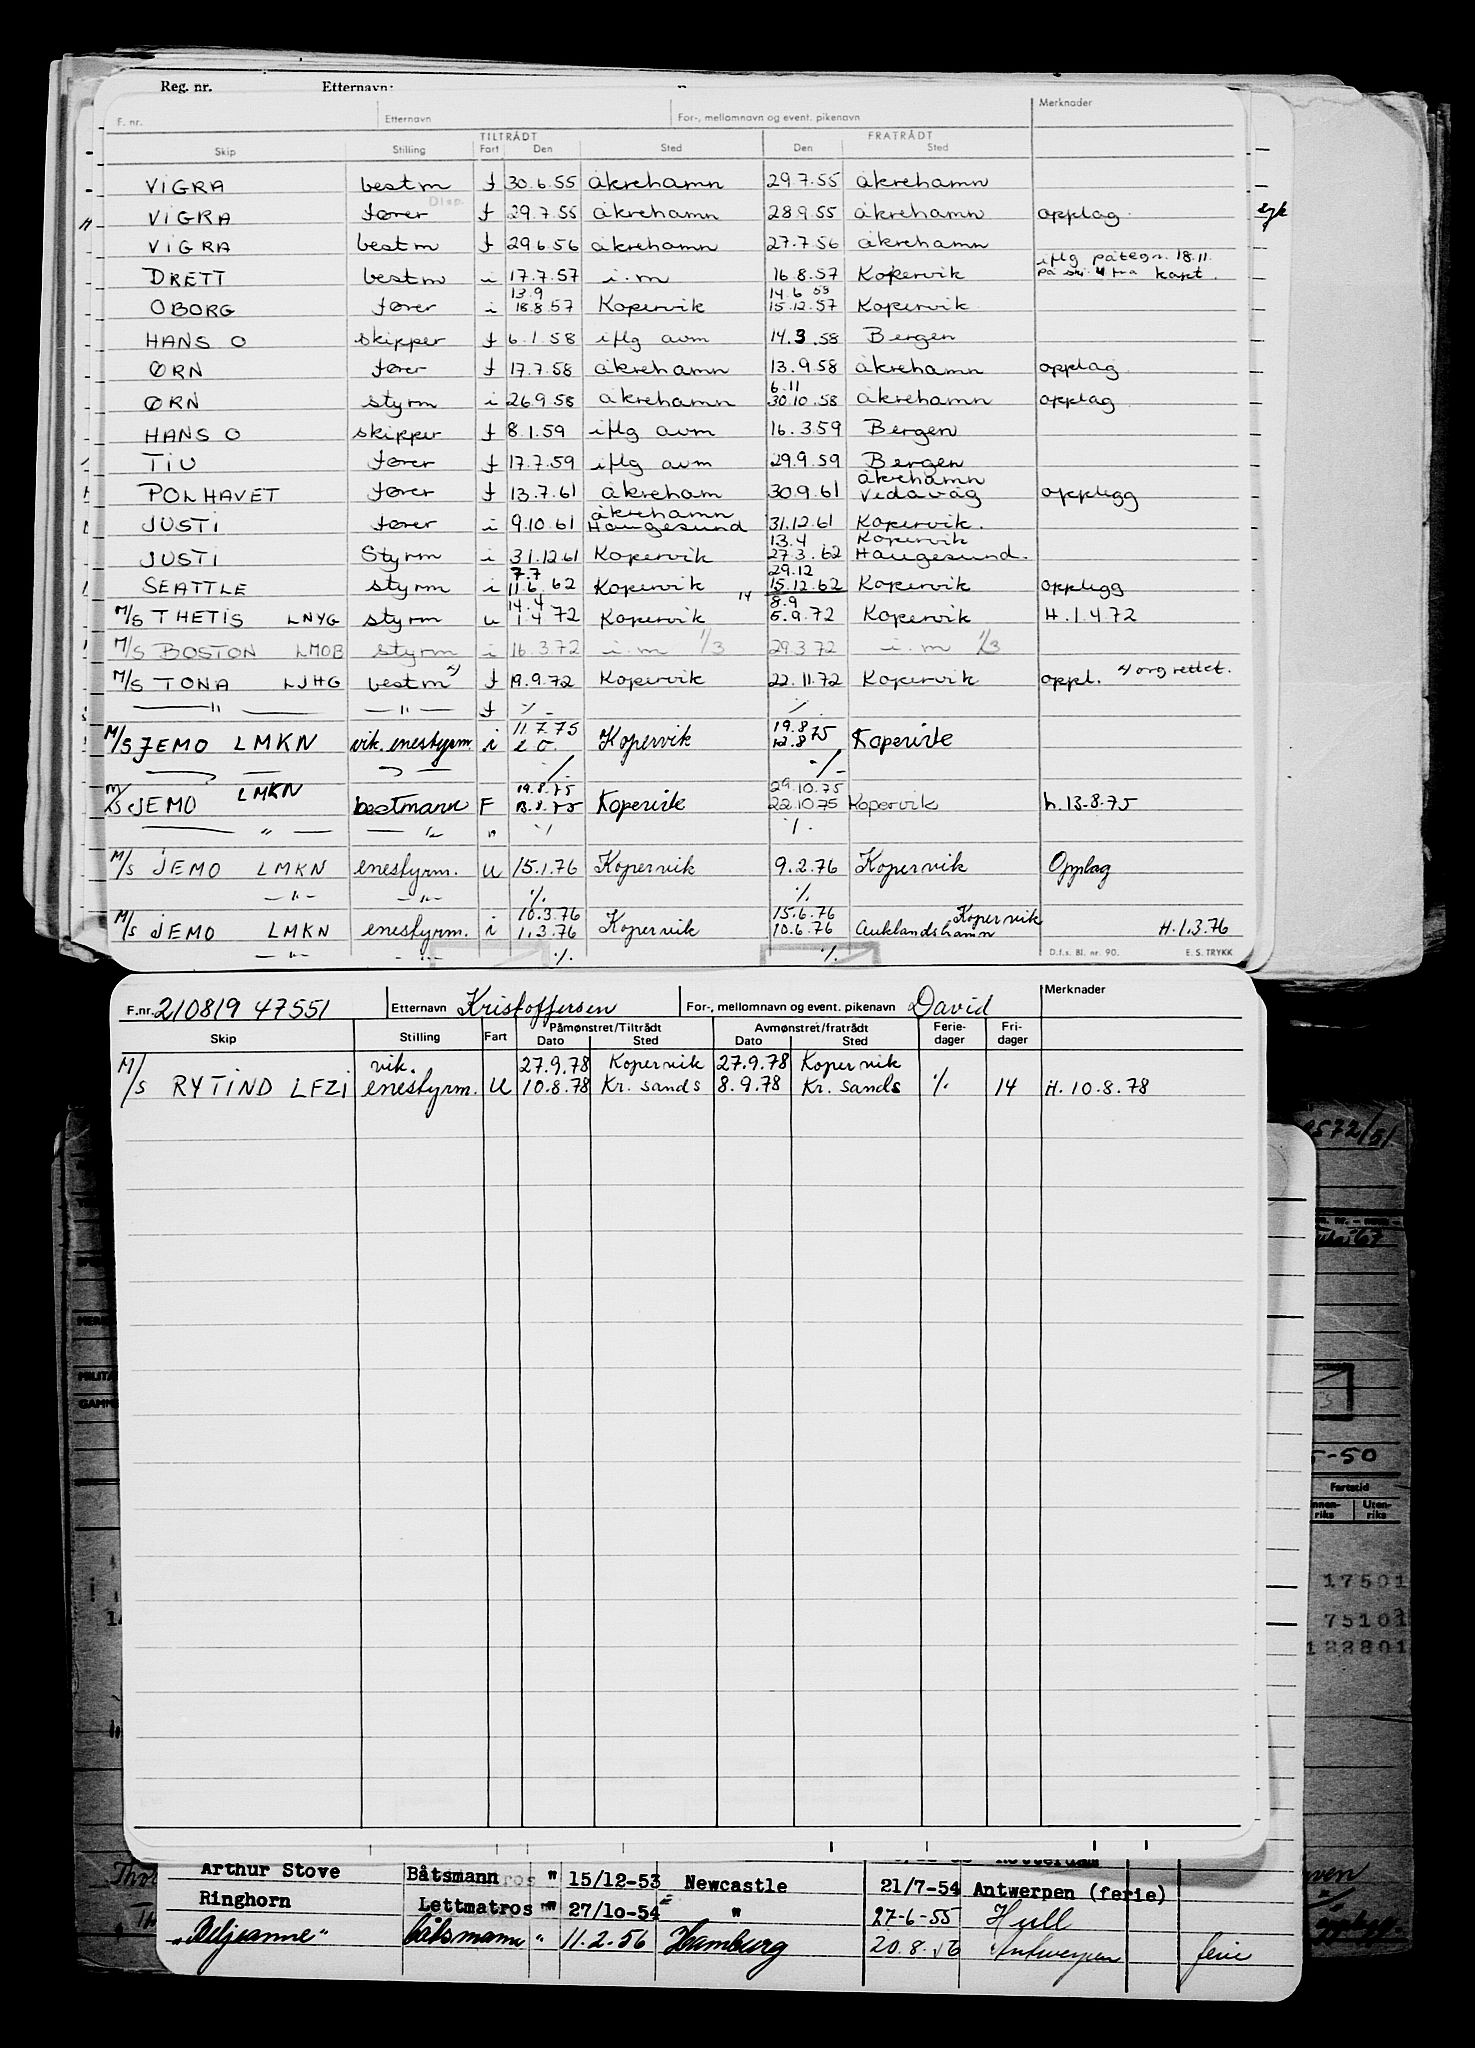 Reg. nr. Etternavn:
F. nr. Etternavn For-, mellomnavn og event. pikenavn Merknader
TILTRÅDT FRATRÅDT
Skip Stilling Fart Den Sted Den Sted
VIGRA bestm f 30.6.55 åkrehamn 29.7.55 åkrehamn
Disp.
VIGRA fører f 29.7.55 åkrehamn 28.9.55 åkrehamn opplag
VIGRA bestm f 29.6.56 åkrehamn 27.7.56 åkrehamn
iflg påtegn. 18.11.
DRETT bestm i 17.7.57 i.m 16.8.57 Kopervik på ski 4 fra kapt.
13.9 14.6 55
OBORG fører i 18.8.57 Kopervik 15.12.57 Kopervik
HANS O skipper f 6.1.58 iflg avm 14.3.58 Bergen
ØRN fører f 17.7.58 åkrehamn 13.9.58 åkrehamn opplag
6.11
ØRN styrm i 26.9.58 åkrehamn 30.10.58 åkrehamn opplag
HANS O skipper f 8.1.59 iflg avm 16.3.59 Bergen
TIU fører f 17.7.59 iflg avm 29.9.59 Bergen
åkrehamn
POLHAVET fører f 13.7.61 åkreham 30.9.61 Vedavåg opplegg
åkrehamn
JUSTI fører i 9.10.61 Haugesund 31.12.61 Kopervik.
13.4 Kopervik
JUSTI Styrm i 31.12.61 Kopervik 27.3.62 Haugesund.
7.7 29.12
SEATTLE styrm i 11.6.62 Kopervik 15.12.62 Kopervik opplegg
14.4 14 8.9
M/S THETIS LNYG styrm u 1.4 72 Kopervik 5.9.72 Kopervik H.1.4.72
M/S BOSTON LMOB styrm i 16.3.72 i.m 1/3 29.3.72 i.m 1/3
M/S TONA LJHG bestm x) f 19.9.72 Kopervik 22.11.72 Kopervik oppl. x) org rettet.
— " — — " — f % %
11.7.75 19.8
M/S JEMO LMKN vik. enestyrm. i Kopervik 12.8 75 Kopervik
% %
19.8.75 29.10.75
M/S JEMO LMKN bestmann F 13.8.75 Kopervik 22.10.75 Kopervik h.13-8.75
— " — — " — " % %
M/S JEMO LMKN enestyrm. u 15.1.76 Kopervik 9.2.76 Kopervik Opplag
— " — — " — % %
10.3.76 15.6.76 Kopervik
M/S JEMO LMKN enestyrm. i 1.3.76 Kopervik 10.6.76 Auklandshamn H.1.3.76
— " — — " — % %
D.f.s. Bl. nr. 90. E. S. TRYKK
F.nr. 210819 47551 Etternavn Kristoffersen For-, mellomnavn og event. pikenavn David Merknader
Skip Stilling Fart Påmønstret/Tiltrådt Avmønstret/fratrådt Ferie-dager Fri-dager
Dato Sted Dato Sted
vik. 27.9.78 Kopervik 27.9.78 Kopervik
M/S RYTIND LFZI enestyrm. U 10.8.78 Kr. sands 8.9.78 Kr. sands % 14 H. 10.8.78
572/51
5-50
Fartstid
Innen-riks Uten-riks
17501
75101
122801
Rotterdam
Arthur Stove Båtsmann " 15/12-53 Newcastle 21/7-54 Antwerpen (ferie)
Ringhorn Lettmatros " 27/10-54 " 27-6-55 Hull
båtsmann " 11.2.56 Hamburg 20.8.56 Antwerpen ferie